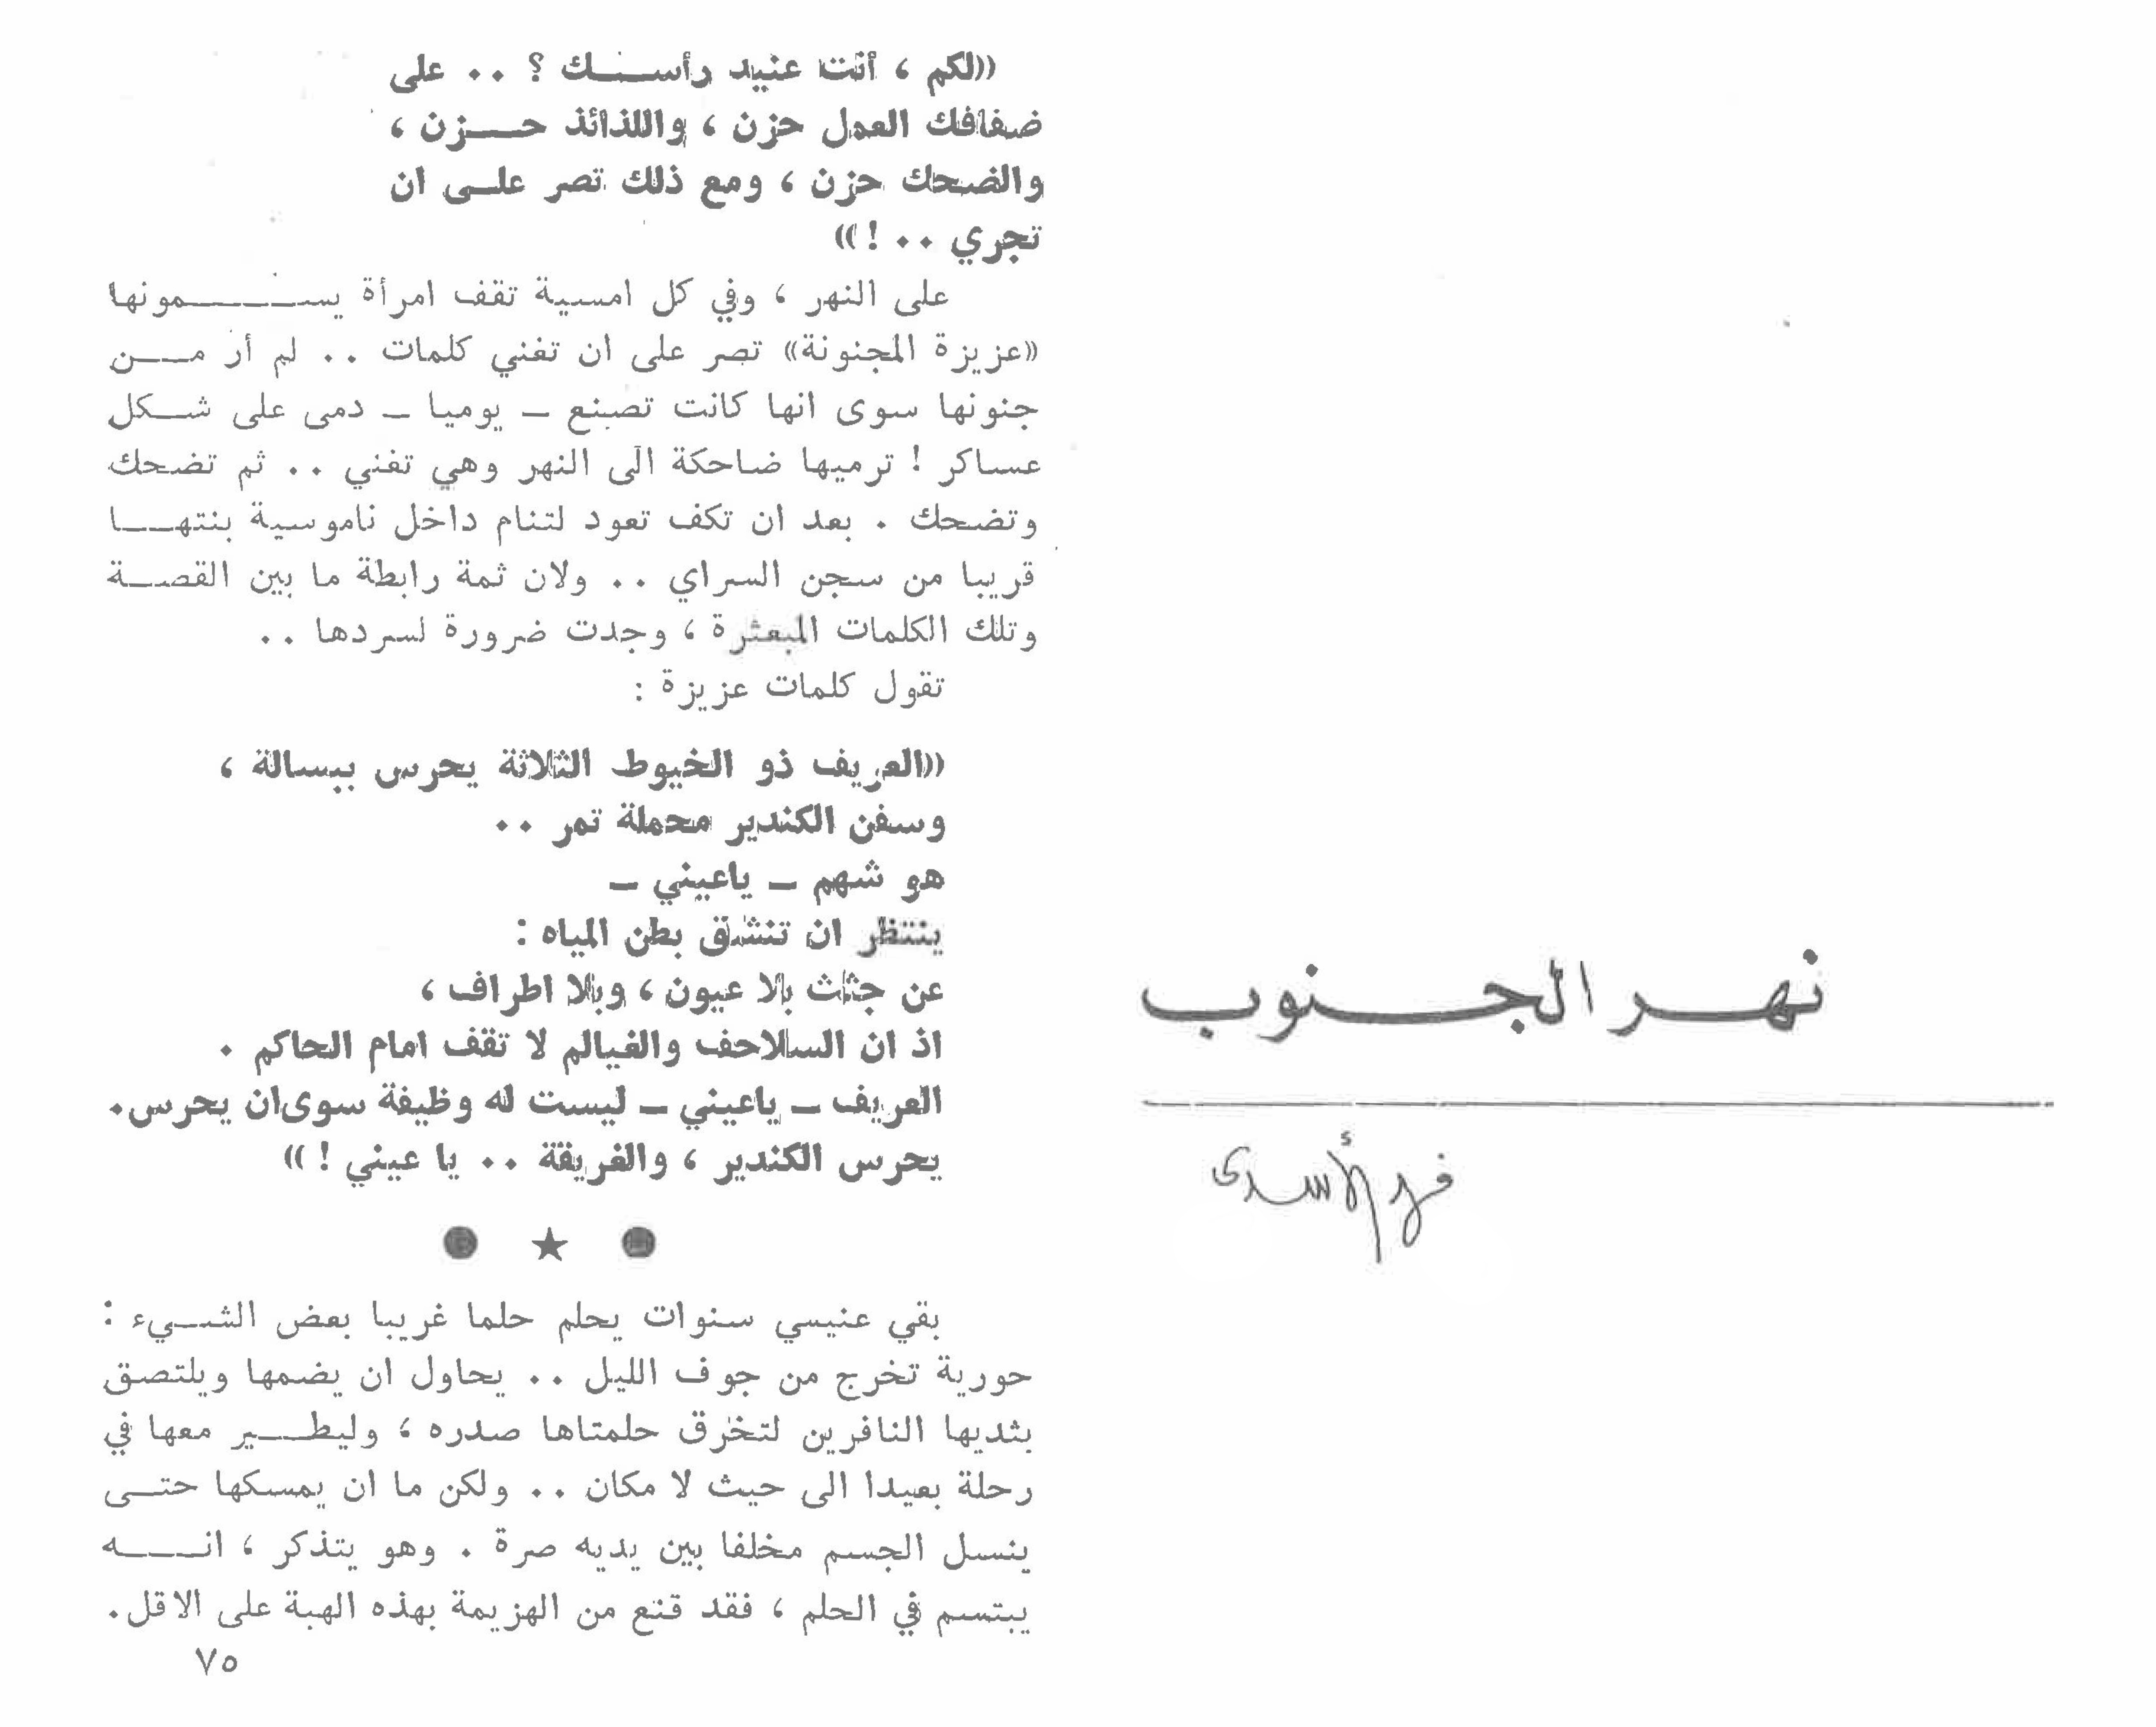 نهر الجنوب
فهد الأسدى
«لكم ، أنت عنيد رأسك ؟ .. على
ضفافك العمل حزن ، واللذائذ حزن ،
والضحك حزن ، ومع ذلك تصر على ان
تجري .. ! »
على النهر ، وفي كل امسية تقف امرأة يسمونها
«عزيزة المجنونة» تصر على ان تغني كلمات .. لم أر من
جنونها سوى انها كانت تصنع – يوميا – دمى على شكل
عساكر ! ترميها ضاحكة الى النهر وهي تغني .. ثم تضحك
وتضحك . بعد ان تكف تعود لتنام داخل ناموسية بنتها
قريبا من سجن السراي .. ولان ثمة رابطة ما بين القصة
وتلك الكلمات المبعثرة ، وجدت ضرورة لسردها ..
تقول كلمات عزيزة :
«العريف ذو الخيوط الثلاثة يحرس ببسالة ،
وسفن الكندير محملة تمر ..
هو شهم – ياعيني –
ينتظر ان تنشق بطن المياه :
عن جثث بلا عيون ، وبلا اطراف ،
اذ ان السلاحف والغيالم لا تقف امام الحاكم .
العريف – ياعيني – ليست له وظيفة سوى ان يحرس.
يحرس الكندير ، والغريقة .. يا عيني ! »
● ★ ●
بقي عنيسي سنوات يحلم حلما غريبا بعض الشيء :
حورية تخرج من جوف الليل .. يحاول ان يضمها ويلتصق
بثديها النافرين لتخرق حلمتاها صدره ، وليطير معها في
رحلة بعيدا الى حيث لا مكان .. ولكن ما ان يمسكها حتى
ينسل الجسم مخلفا بين يديه صرة . وهو يتذكر ، انه
يبتسم في الحلم ، فقد قنع من الهزيمة بهذه الهبة على الاقل.
٧٥